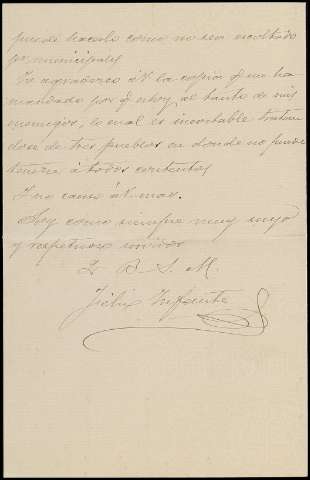 puede hacerlo como no sea escoltado
por municipales
Le agradezco á V. la copia q. me ha
mandado por q. estoy al tanto de mis
enemigos, lo cual es inevitable tratan
dose de tres pueblos en donde no puede
tenerse á todos contentos
Y no canso á V. mas.
Soy como siempre muy suyo
y respetuoso
Q. B. S. M.
Felix Infante